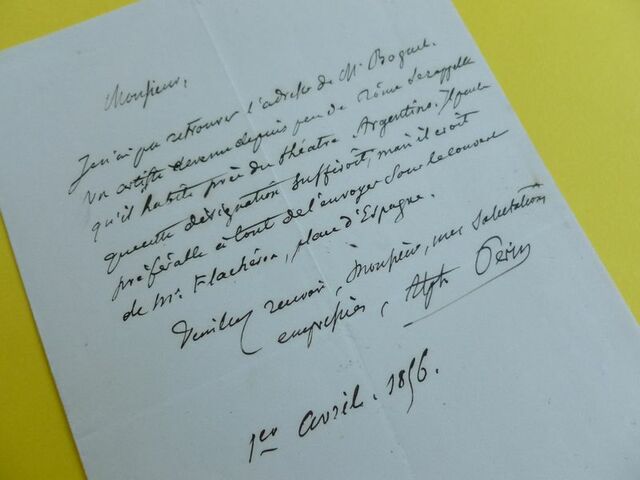 Monsieur,
Je n'ai pu retrouver l'adresse de Mr Boguet.
Un artiste revenu depuis peu de Rome se rappelle
qu'il habite près du théatre Argentina. Il pense
que cette désignation suffiroit, mais il croit
préférable à tout de l'envoyer sous le couvert
de Mr Flachéron, place d'Espagne.
Veuillez recevoir, Monsieur, mes salutations
empressées, Alph Périn
1er avril. 1856.